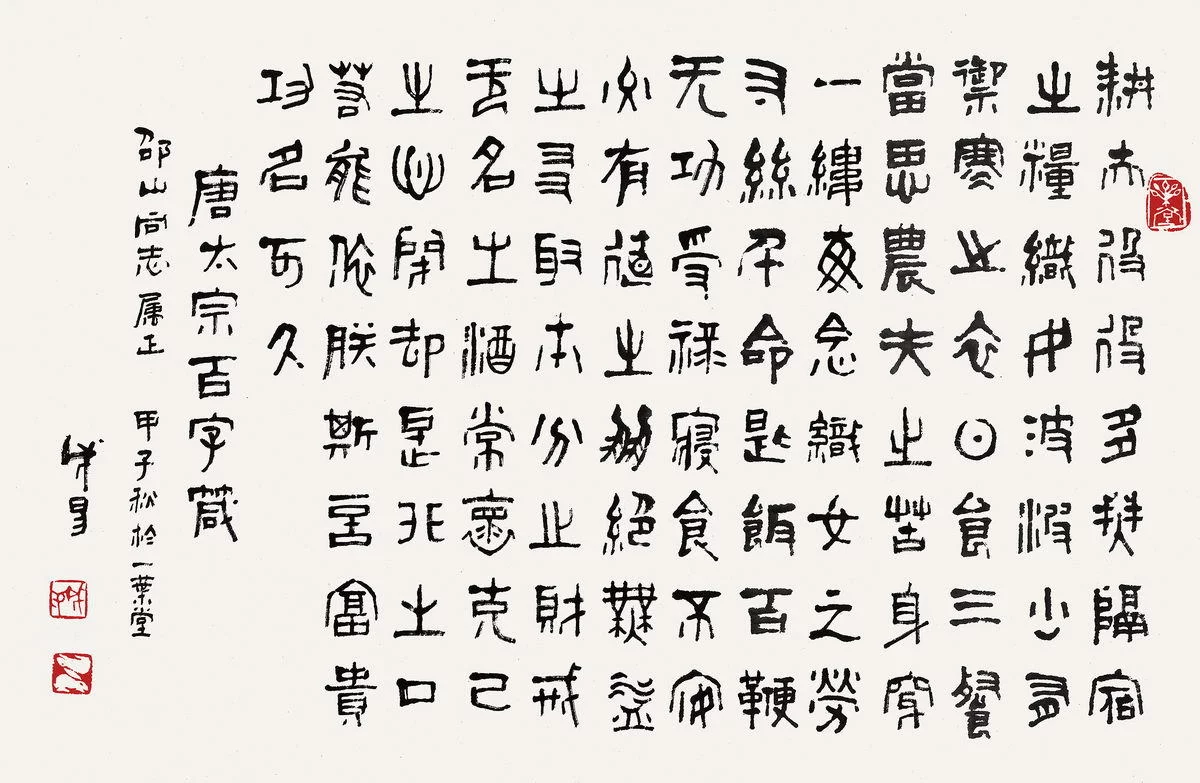 耕夫役役多無隔宿
之糧織女波波少有
禦寒之衣日食三餐
當思農夫之苦身穿
一縷每念織女之勞
寸絲千命匙飯百鞭
无功受祿寢食不安
交有德之朋絕無益
之友取本分之財戒
无名之酒常懷克己
之心閉卻是非之口
若能依朕斯言富貴
功名可久
唐太宗百字箴
邵山同志属正 甲子秋於一葉堂